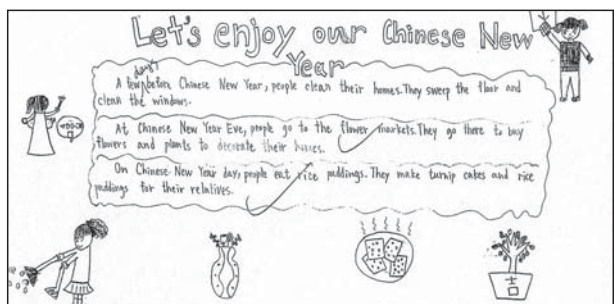 Let's enjoy our Chinese New
Year
A few days before Chinese New Year, people clean their homes. They sweep the floor and
clean the windows.
At Chinese New Year Eve, people go to the flower markets. They go there to buy
flowers and plants to decorate their homes.
On Chinese New Year day, people eat rice puddings. They make turnip cakes and rice
puddings for their relatives.
吉